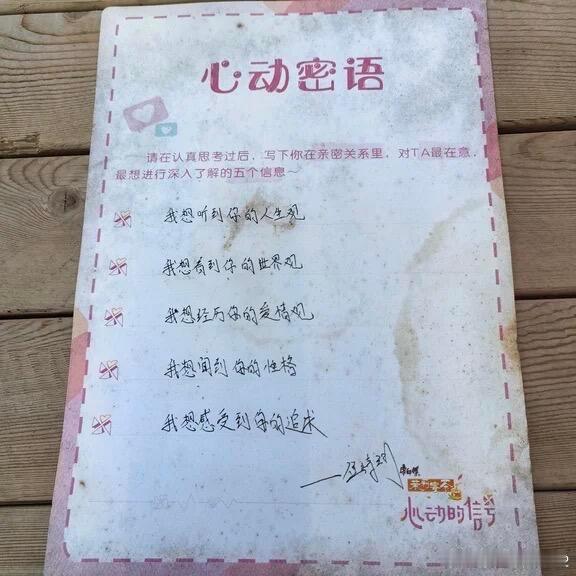 心动密语
请在认真思考过后，写下你在亲密关系里，对TA最在意，
最想进行深入了解的五个信息～
我想听到你的人生观
我想看到你的世界观
我想经历你的爱情观
我想闻到你的性格
我想感受到你的追求
心动的信号